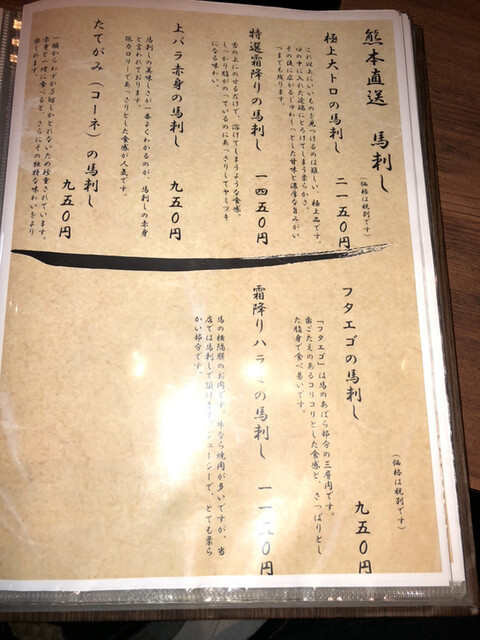 熊本直送 馬刺し
（価格は税別です）
極上大トロの馬刺し 二一五〇円
これ以上にいいものを見つけるのは難しい、極上品です。
口の中に入れた途端にとろけてしまう柔らかさ。
その後に広がるじゅわーっとした甘味と濃厚な旨みがい
つまでも残ります。
特選霜降りの馬刺し 一四五〇円
舌の上にのせるだけで、溶けてしまうような食感。
しっかり脂がのっているのにあっさりしてヤミツキ
になる味わい。
上バラ赤身の馬刺し 九五〇円
馬刺しの美味しさが一番よくわかるのが、馬刺しの赤身
と言われております。
低カロリーであっさりとした食感が人気です。
たてがみ（コーネ）の馬刺し 九五〇円
一頭からわずか5㎏しかとれないため珍重されています。
赤身と一緒に食べると、さらにその独特な味わいをより
楽しめます。
（価格は税別です）
フタエゴの馬刺し 九五〇円
「フタエゴ」は馬のあばら部分の三層肉です。
歯ごたえのあるコリコリとした食感と、さっぱりとし
た脂身で食べ易いです。
霜降りハラミの馬刺し 一一 〇円
馬の横隔膜のお肉です。牛なら焼肉が多いですが、当
店では馬刺しで頂けます。ジューシーで、とても柔ら
かい部分です。